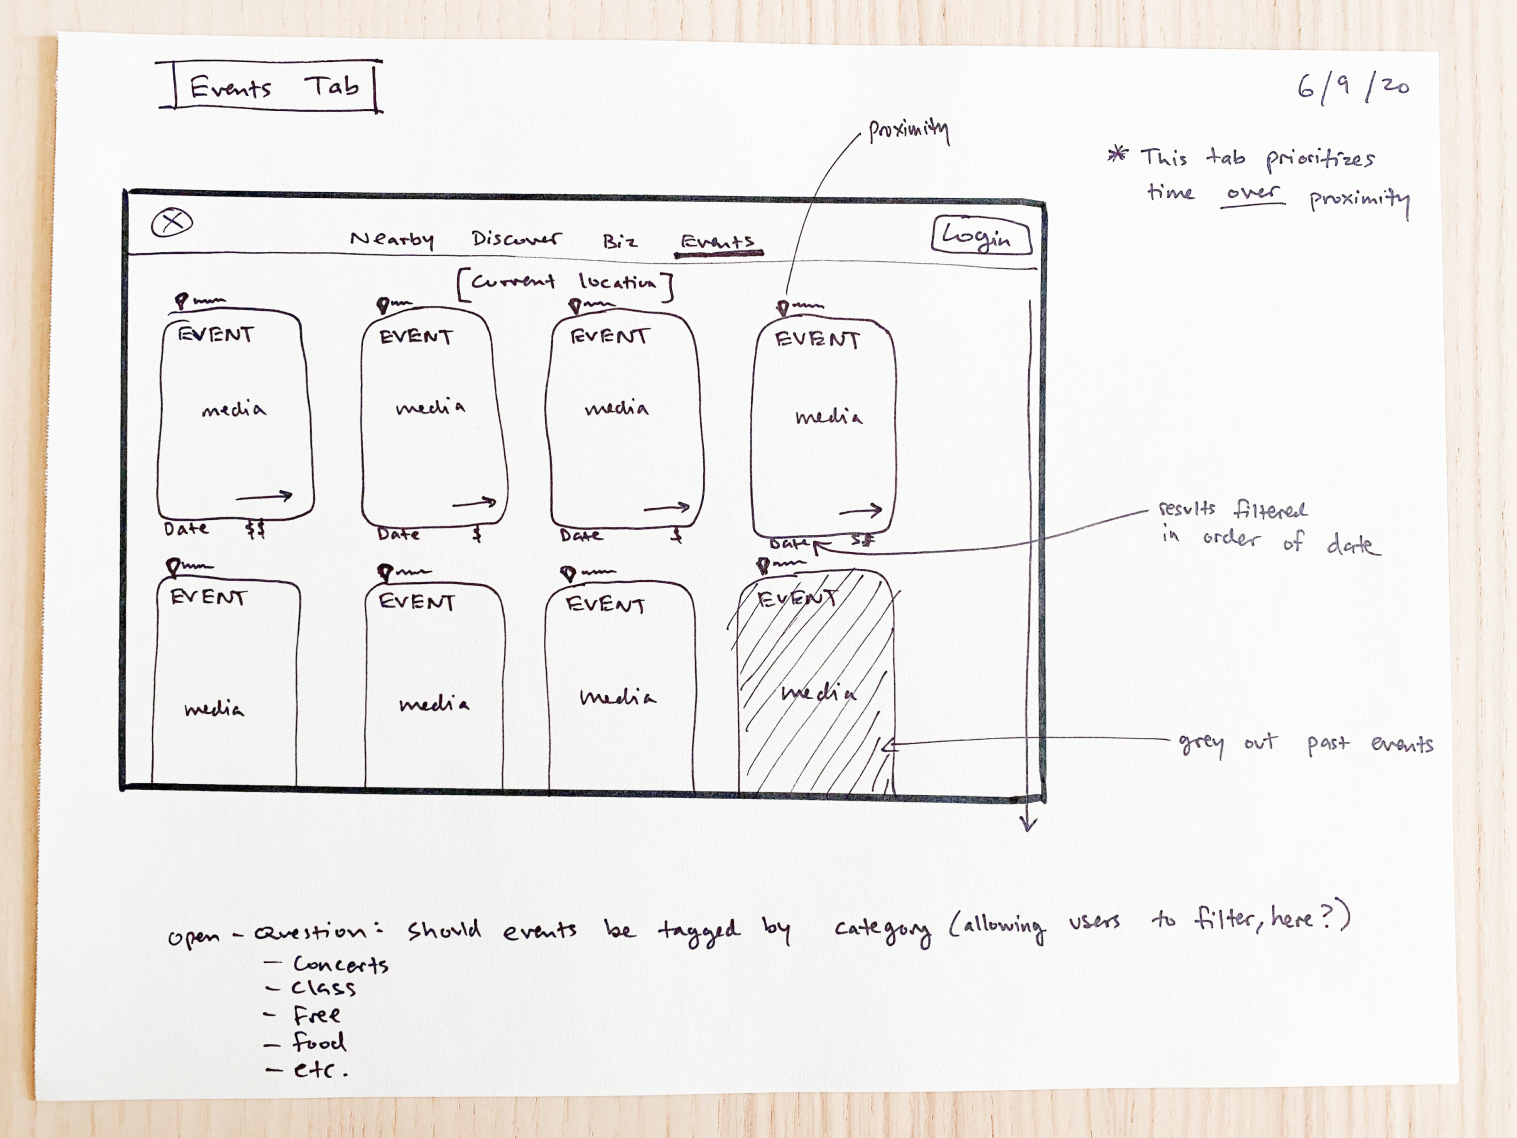 Events Tab
6/9/20
proximity
* This tab prioritizes
time over proximity
X
Nearby Discover Biz Events
Login
[Current location]
EVENT EVENT EVENT EVENT
media media media media
Date $$ Date $ Date $ Date $$
results filtered
in order of date
EVENT EVENT EVENT EVENT
media media media media
grey out past events
open-question: should events be tagged by category (allowing users to filter, here?)
- Concerts
- Class
- Free
- food
- etc.